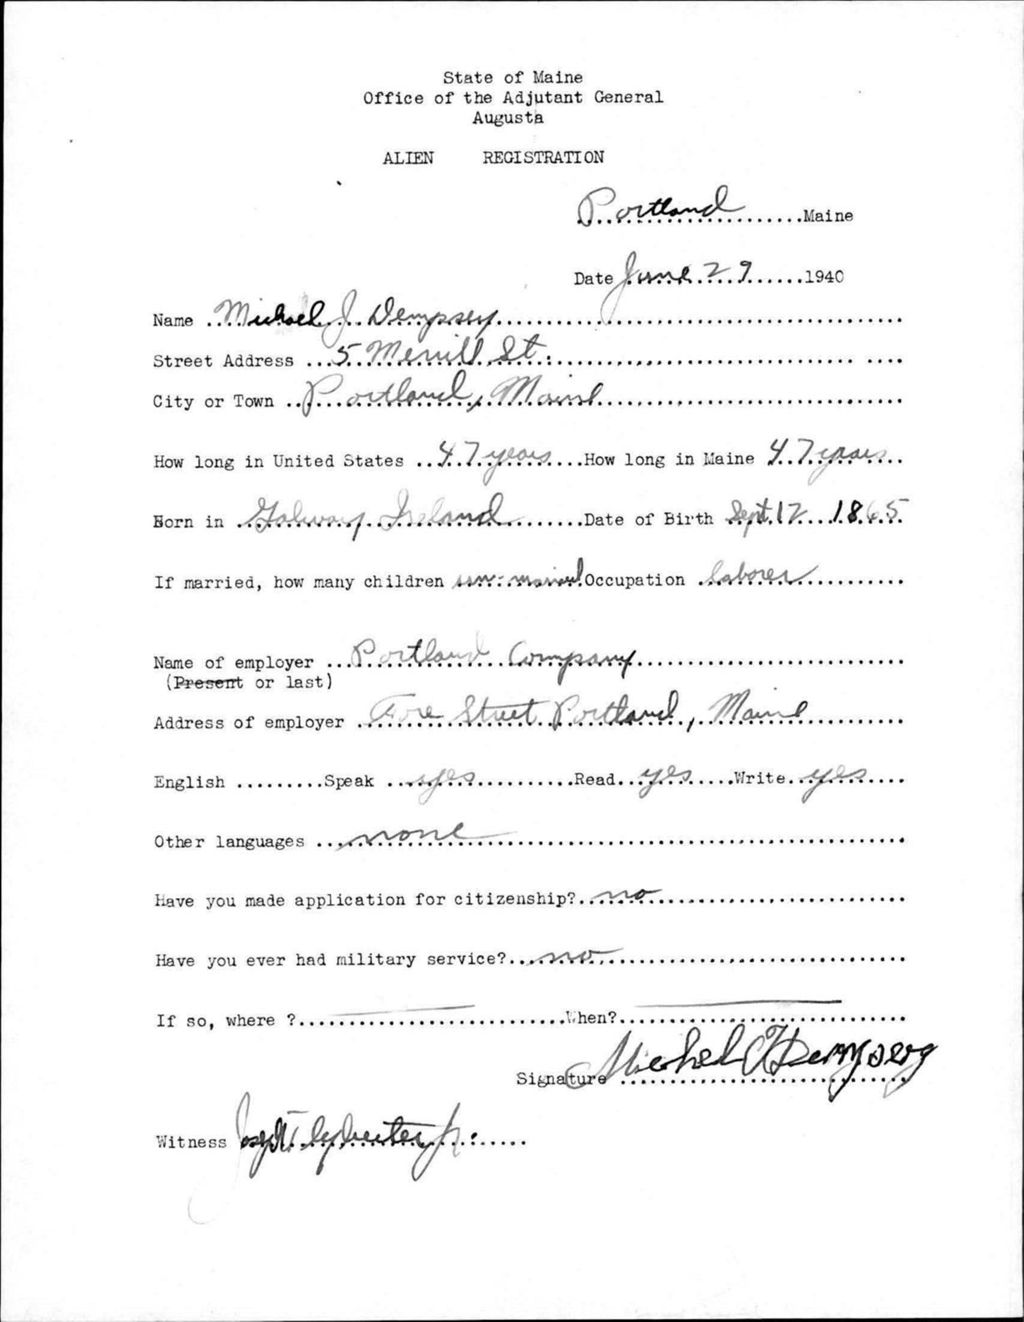 State of Maine
Office of the Adjutant General
Augusta
ALIEN REGISTRATION
Portland Maine
Date June 29 1940
Name Michael J Dempsey
Street Address 5 Merrill St.
City or Town Portland, Maine
How long in United States 47 years How long in Maine 47 years
Born in Galway Ireland Date of Birth Sept. 12 1865
If married, how many children Occupation laborer
Name of employer Portland Company
(Present or last)
Address of employer Fore Street Portland, Maine
English Speak yes Read yes Write yes
Other languages none
Have you made application for citizenship? no
Have you ever had military service? no
If so, where ? When?
Signature Michel J Dempsey
Witness Jr.